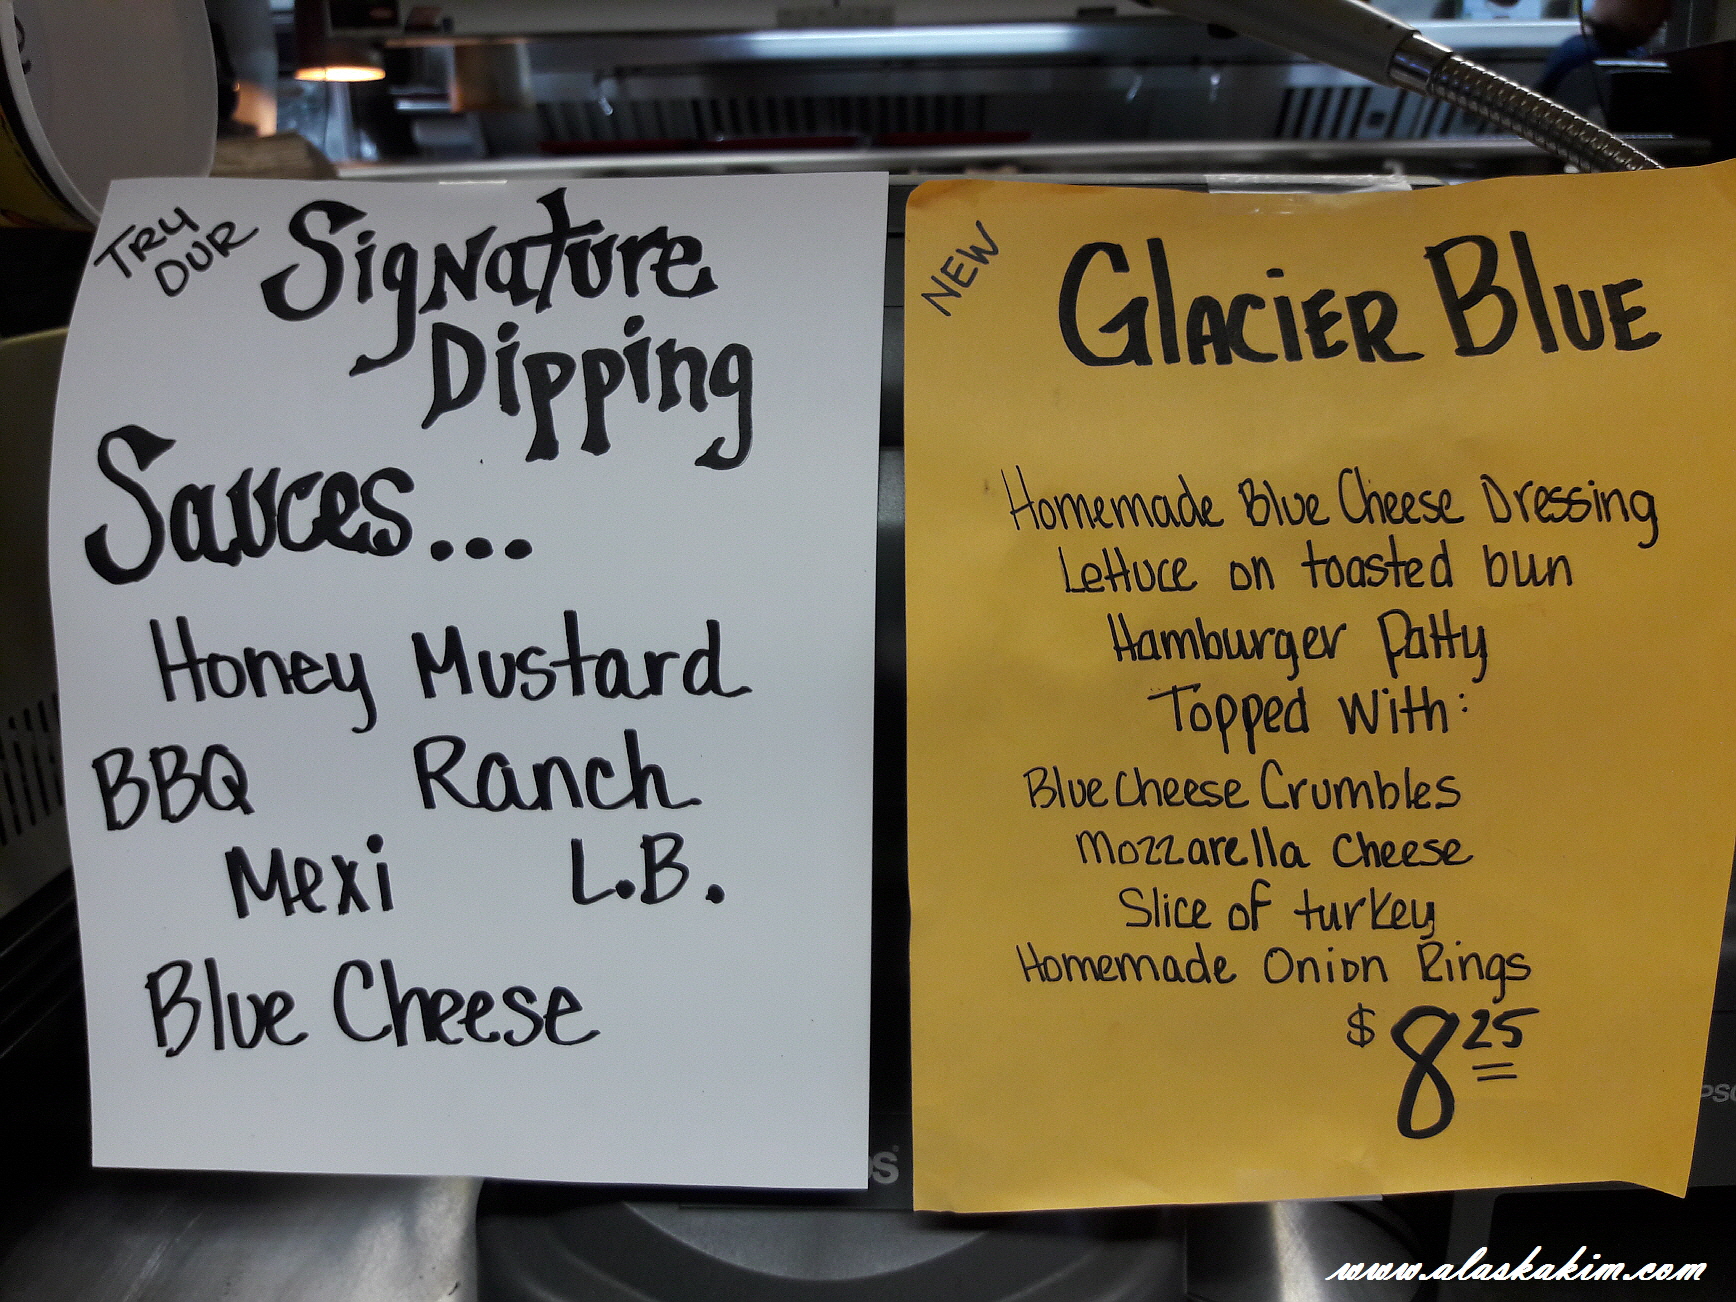 TRY
OUR
Signature
Dipping
Sauces...
Honey Mustard
BBQ Ranch
Mexi L.B.
Blue Cheese
NEW
Glacier Blue
Homemade Blue Cheese Dressing
Lettuce on toasted bun
Hamburger Patty
Topped with:
Blue Cheese Crumbles
Mozzarella Cheese
Slice of turkey
Homemade Onion Rings
$8 25
www.alaskakim.com